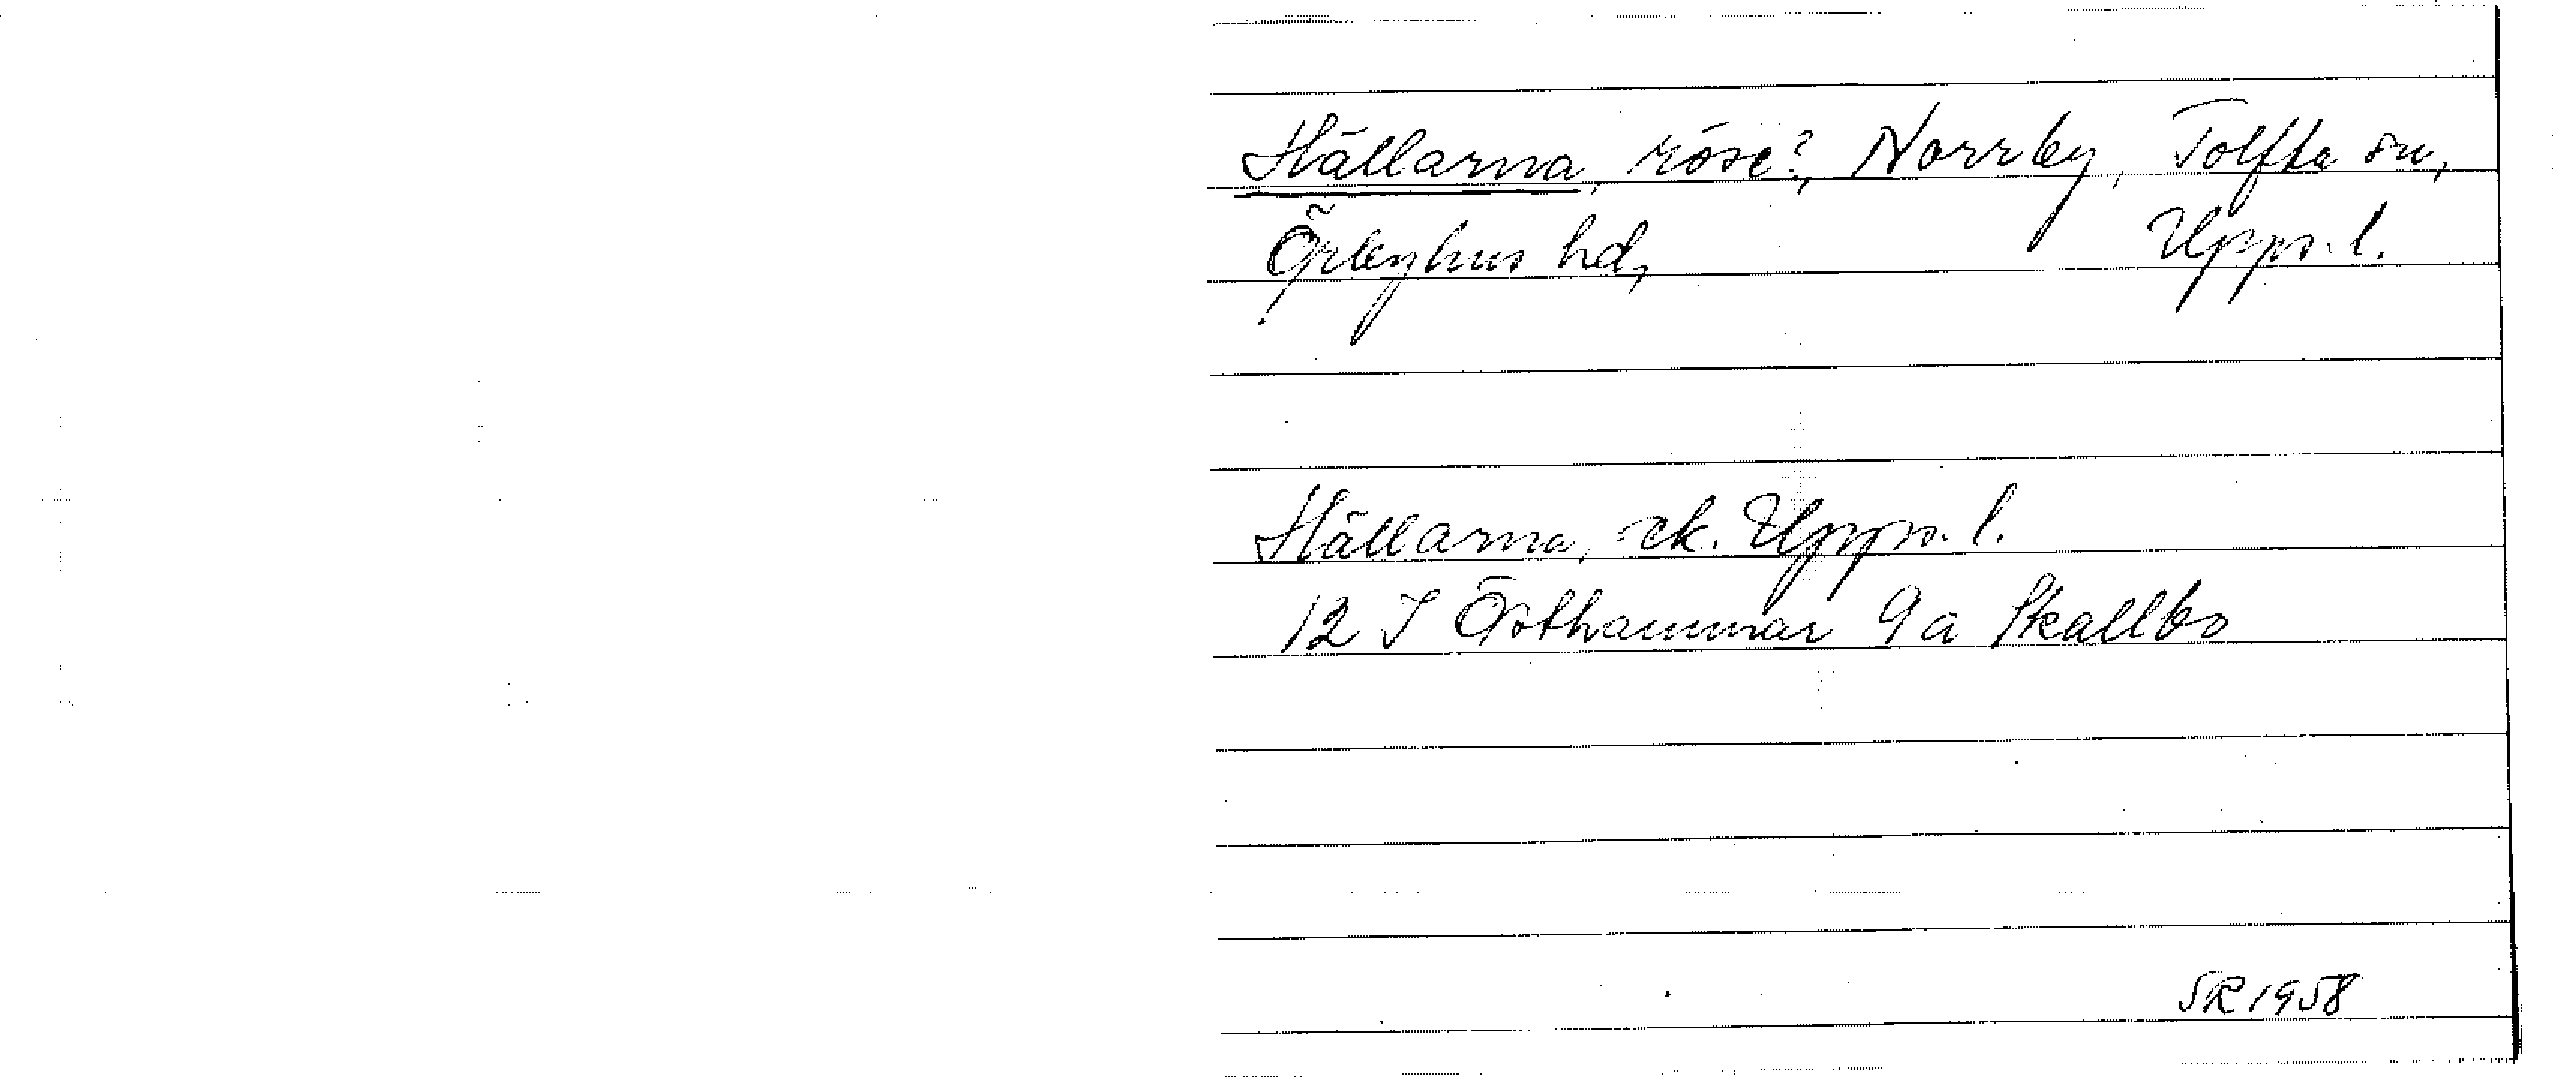 Hällarna, röse?, Norrby, Tolfta sn,
Örbyhus hd, Upps. l.
Hällarna, ek. Upps. l.
12 I Östhammar 9 a Skallbo
SR 1958